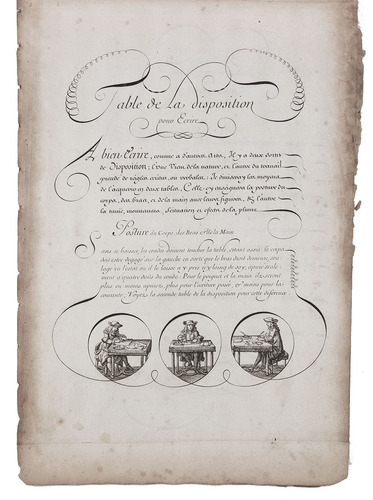 Table de La disposition
pour Ecrire
A bien Ecrire, comme a d'autres Arts, Il y a deux sortes
de Disposition; L'une Vient de la nature, et L'autre du travail
de règles
Je donneray les moyens
de L'acquerir en deux tables. Celle-cy enseignera la posture du
corps, des bras, et de la main avec leurs figures, & L'autre
la tenüe, mouvemens, scituation et effets de la plume.
Posture du Corps des Bras et de la Main
Sans se baisser, les coudes doivent toucher la table, estant assis: le corps
doit estre degagé sur la gauche en sorte que le bras droit
a quatre doits du coude. Pour le poignet et la main
plus ou moins apuiez, plus pour L'ecriture posée, & moins pour la
courante. Voyez la seconde table de la disposition pour cette difference.